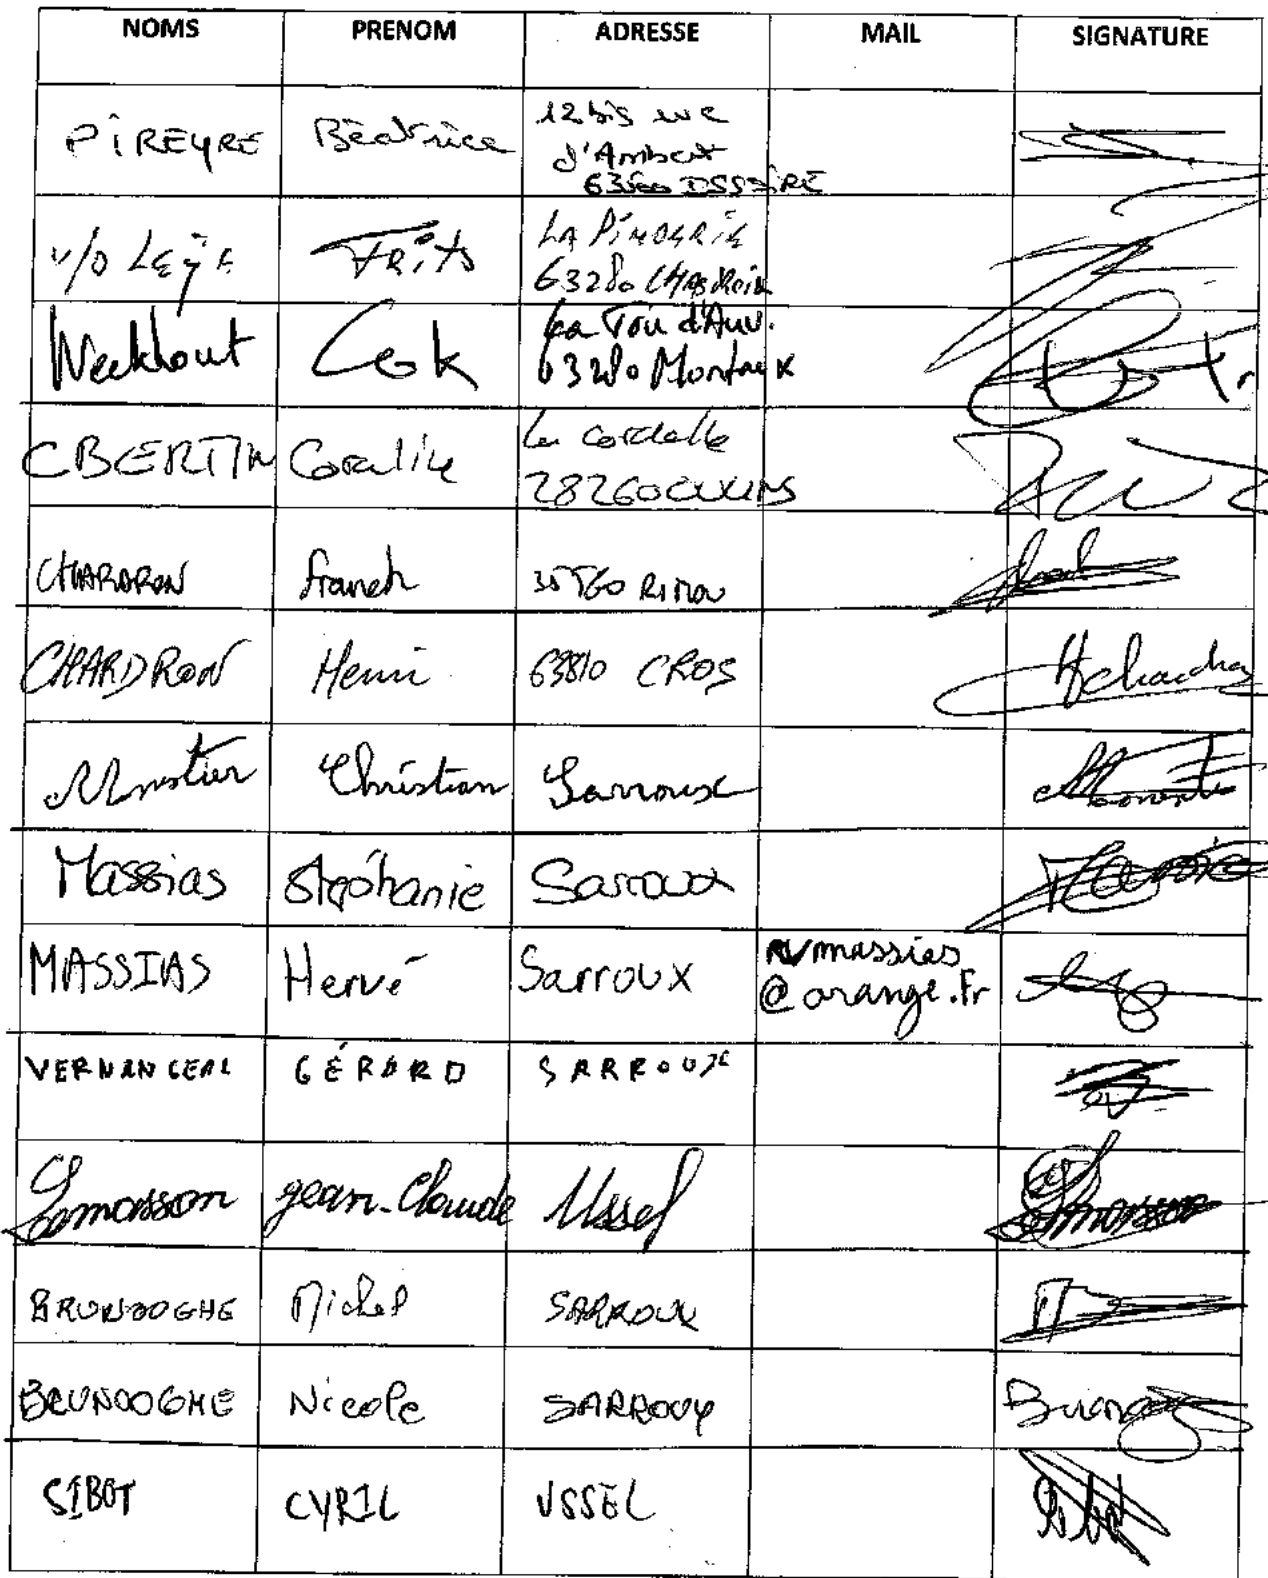 NOMS PRENOM ADRESSE MAIL SIGNATURE
PIREYRE Béatrice 12 bis rue
d'Ambert
63500 ISSOIRE
V/D Leÿe Frits La
63280
Weekhout Cok La Tour d'Auv.
6320
CBERTIN Coraline La Cordelle
28260
CHARDRON Franck 35560 Rimou
CHARDRON Henri 63810 CROS
Monestier Christian Sarroux
Massias Stéphanie Sarroux
MASSIAS Hervé Sarroux rvmassias
@orange.fr
VERNANGEAL GÉRARD SARROUX
Lamasson jean-Claude Ussel
BRUNOOGHE Michel SARROUX
BRUNOOGHE Nicole SARROUX
SIBOT CYRIL USSEL